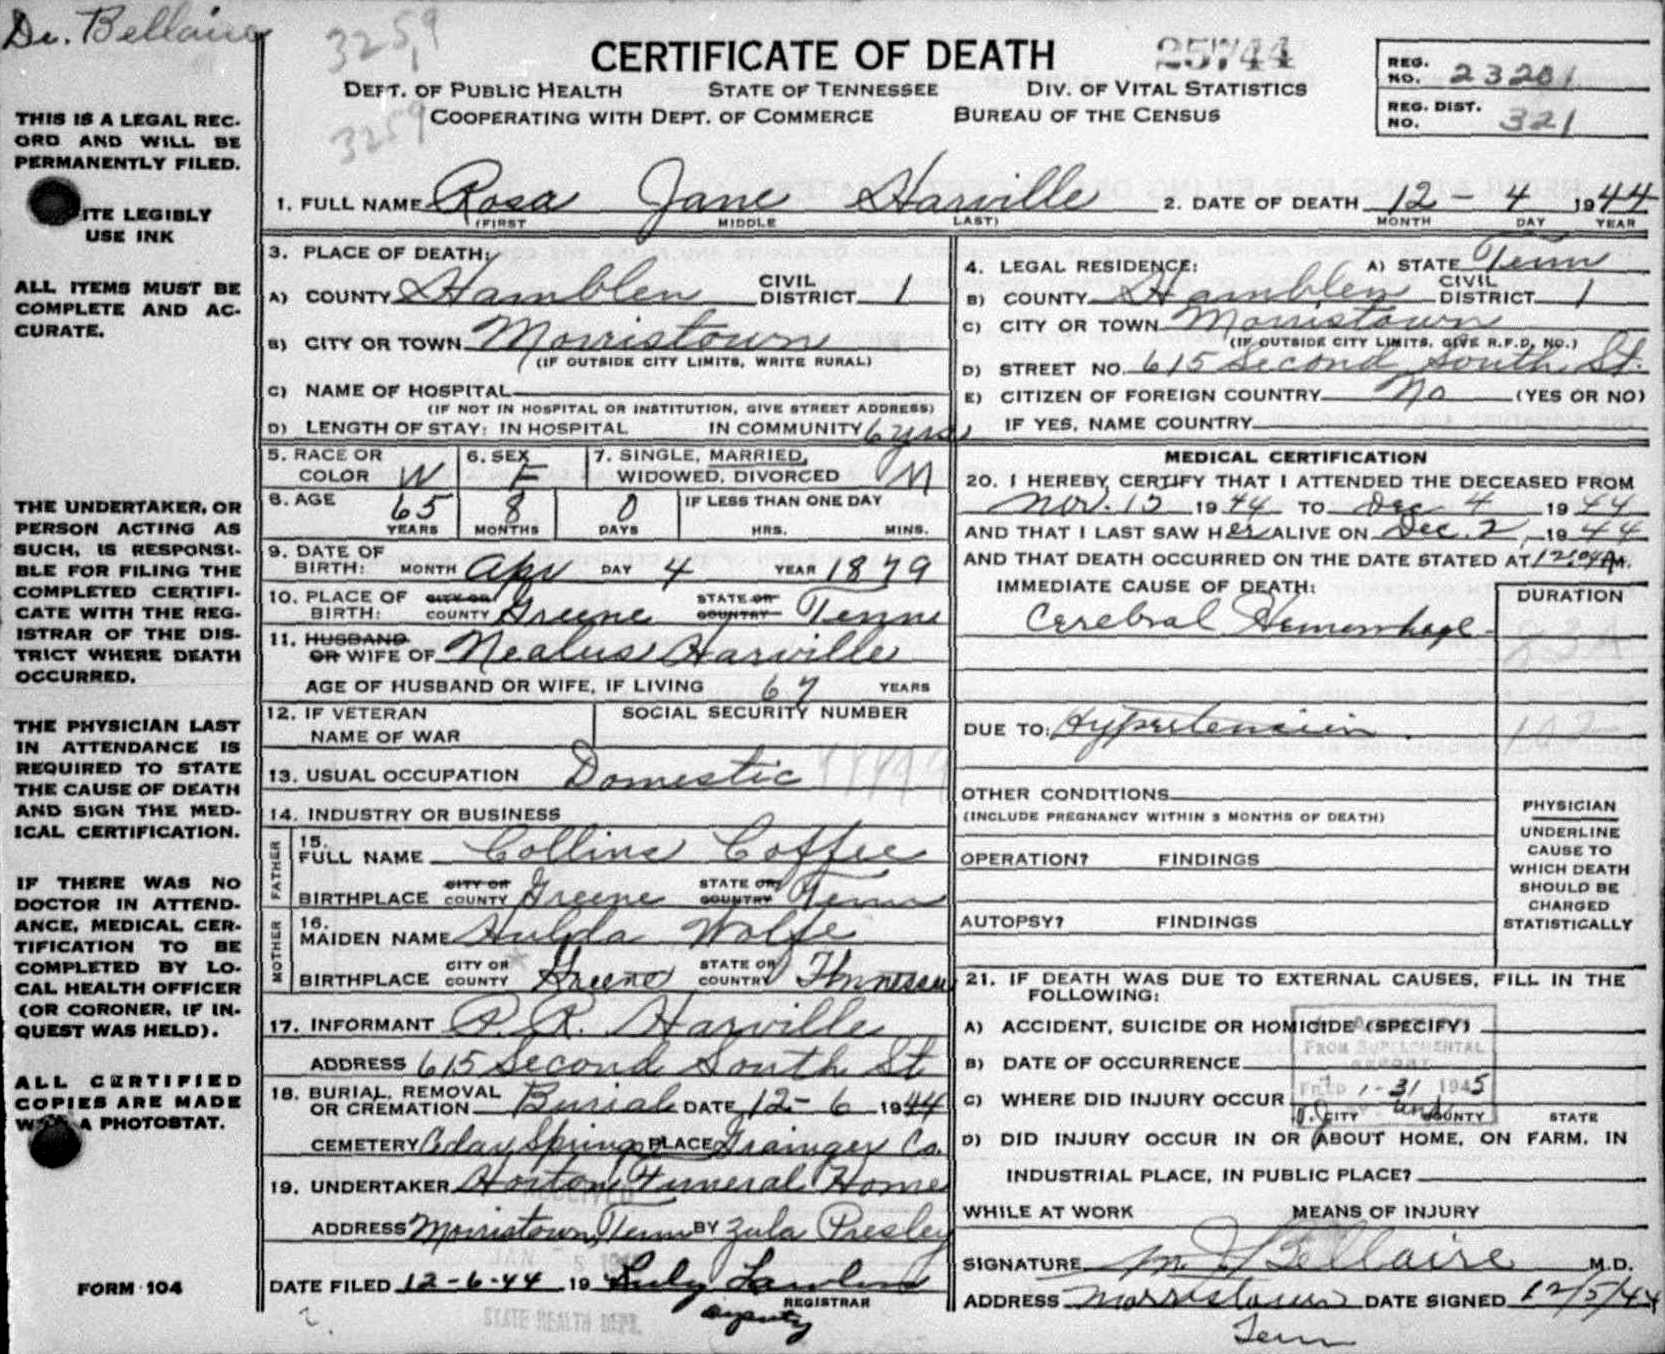 Dr. Bellaire
3259
3259
CERTIFICATE OF DEATH
25744
DEPT. OF PUBLIC HEALTH STATE OF TENNESSEE DIV. OF VITAL STATISTICS
COOPERATING WITH DEPT. OF COMMERCE BUREAU OF THE CENSUS
REG. NO. 23201
REG. DIST. NO. 321
THIS IS A LEGAL REC-
ORD AND WILL BE
PERMANENTLY FILED.
ITE LEGIBLY
USE INK
ALL ITEMS MUST BE
COMPLETE AND AC-
CURATE.
THE UNDERTAKER, OR
PERSON ACTING AS
SUCH, IS RESPONSI-
BLE FOR FILING THE
COMPLETED CERTIFI-
CATE WITH THE REG-
ISTRAR OF THE DIS-
TRICT WHERE DEATH
OCCURRED.
THE PHYSICIAN LAST
IN ATTENDANCE IS
REQUIRED TO STATE
THE CAUSE OF DEATH
AND SIGN THE MED-
ICAL CERTIFICATION.
IF THERE WAS NO
DOCTOR IN ATTEND-
ANCE, MEDICAL CER-
TIFICATION TO BE
COMPLETED BY LO-
CAL HEALTH OFFICER
(OR CORONER, IF IN-
QUEST WAS HELD).
ALL CERTIFIED
COPIES ARE MADE
A PHOTOSTAT.
FORM 104
1. FULL NAME Rosa Jane Harville 2. DATE OF DEATH 12 - 4 1944
(FIRST MIDDLE LAST) MONTH DAY YEAR
3. PLACE OF DEATH:
A) COUNTY Hamblen CIVIL DISTRICT 1
B) CITY OR TOWN Morristown
(IF OUTSIDE CITY LIMITS, WRITE RURAL)
C) NAME OF HOSPITAL
(IF NOT IN HOSPITAL OR INSTITUTION, GIVE STREET ADDRESS)
D) LENGTH OF STAY: IN HOSPITAL IN COMMUNITY 6 yrs
4. LEGAL RESIDENCE: A) STATE Tenn
B) COUNTY Hamblen CIVIL DISTRICT 1
C) CITY OR TOWN Morristown
(IF OUTSIDE CITY LIMITS, GIVE R.F.D. NO.)
D) STREET NO. 615 Second South St.
E) CITIZEN OF FOREIGN COUNTRY No (YES OR NO)
IF YES, NAME COUNTRY
5. RACE OR COLOR W 6. SEX F 7. SINGLE, MARRIED, WIDOWED, DIVORCED M
8. AGE 65 YEARS 8 MONTHS 0 DAYS IF LESS THAN ONE DAY HRS. MINS.
9. DATE OF BIRTH: MONTH Apr DAY 4 YEAR 1879
10. PLACE OF BIRTH: CITY OR COUNTY Greene STATE OR COUNTRY Tenn
11. HUSBAND OR WIFE OF Nealus Harville
AGE OF HUSBAND OR WIFE, IF LIVING 67 YEARS
12. IF VETERAN NAME OF WAR SOCIAL SECURITY NUMBER
13. USUAL OCCUPATION Domestic
14. INDUSTRY OR BUSINESS
FATHER
15. FULL NAME Collins Coffee
BIRTHPLACE CITY OR COUNTY Greene STATE OR COUNTRY Tenn
MOTHER
16. MAIDEN NAME Hulda Wolfe
BIRTHPLACE CITY OR COUNTY Greene STATE OR COUNTRY Tennessee
17. INFORMANT P. R. Harville
ADDRESS 615 Second South St
18. BURIAL, REMOVAL OR CREMATION Burial DATE 12-6 1944
CEMETERY Oday Springs PLACE Grainger Co.
19. UNDERTAKER Horton Funeral Home
ADDRESS Morristown, Tenn BY Zula Presley
DATE FILED 12-6-44 19
REGISTRAR
Deputy
STATE HEALTH DEPT.
MEDICAL CERTIFICATION
20. I HEREBY CERTIFY THAT I ATTENDED THE DECEASED FROM
Nov. 13 1944 TO Dec 4 1944
AND THAT I LAST SAW HER ALIVE ON Dec. 2, 1944
AND THAT DEATH OCCURRED ON THE DATE STATED AT 12:04 A M.
IMMEDIATE CAUSE OF DEATH: DURATION
Cerebral Hemorrhage
DUE TO: Hypertension
OTHER CONDITIONS
(INCLUDE PREGNANCY WITHIN 3 MONTHS OF DEATH)
OPERATION? FINDINGS
AUTOPSY? FINDINGS
PHYSICIAN
UNDERLINE
CAUSE TO
WHICH DEATH
SHOULD BE
CHARGED
STATISTICALLY
21. IF DEATH WAS DUE TO EXTERNAL CAUSES, FILL IN THE
FOLLOWING:
A) ACCIDENT, SUICIDE OR HOMICIDE (SPECIFY)
B) DATE OF OCCURRENCE
FROM SUPPLEMENTAL
REPORT
FILED 1-31 1945
C) WHERE DID INJURY OCCUR CITY COUNTY STATE
D) DID INJURY OCCUR IN OR ABOUT HOME, ON FARM, IN
INDUSTRIAL PLACE, IN PUBLIC PLACE?
WHILE AT WORK MEANS OF INJURY
SIGNATURE M J Bellaire M.D.
ADDRESS Morristown DATE SIGNED 12/5/44
Tenn